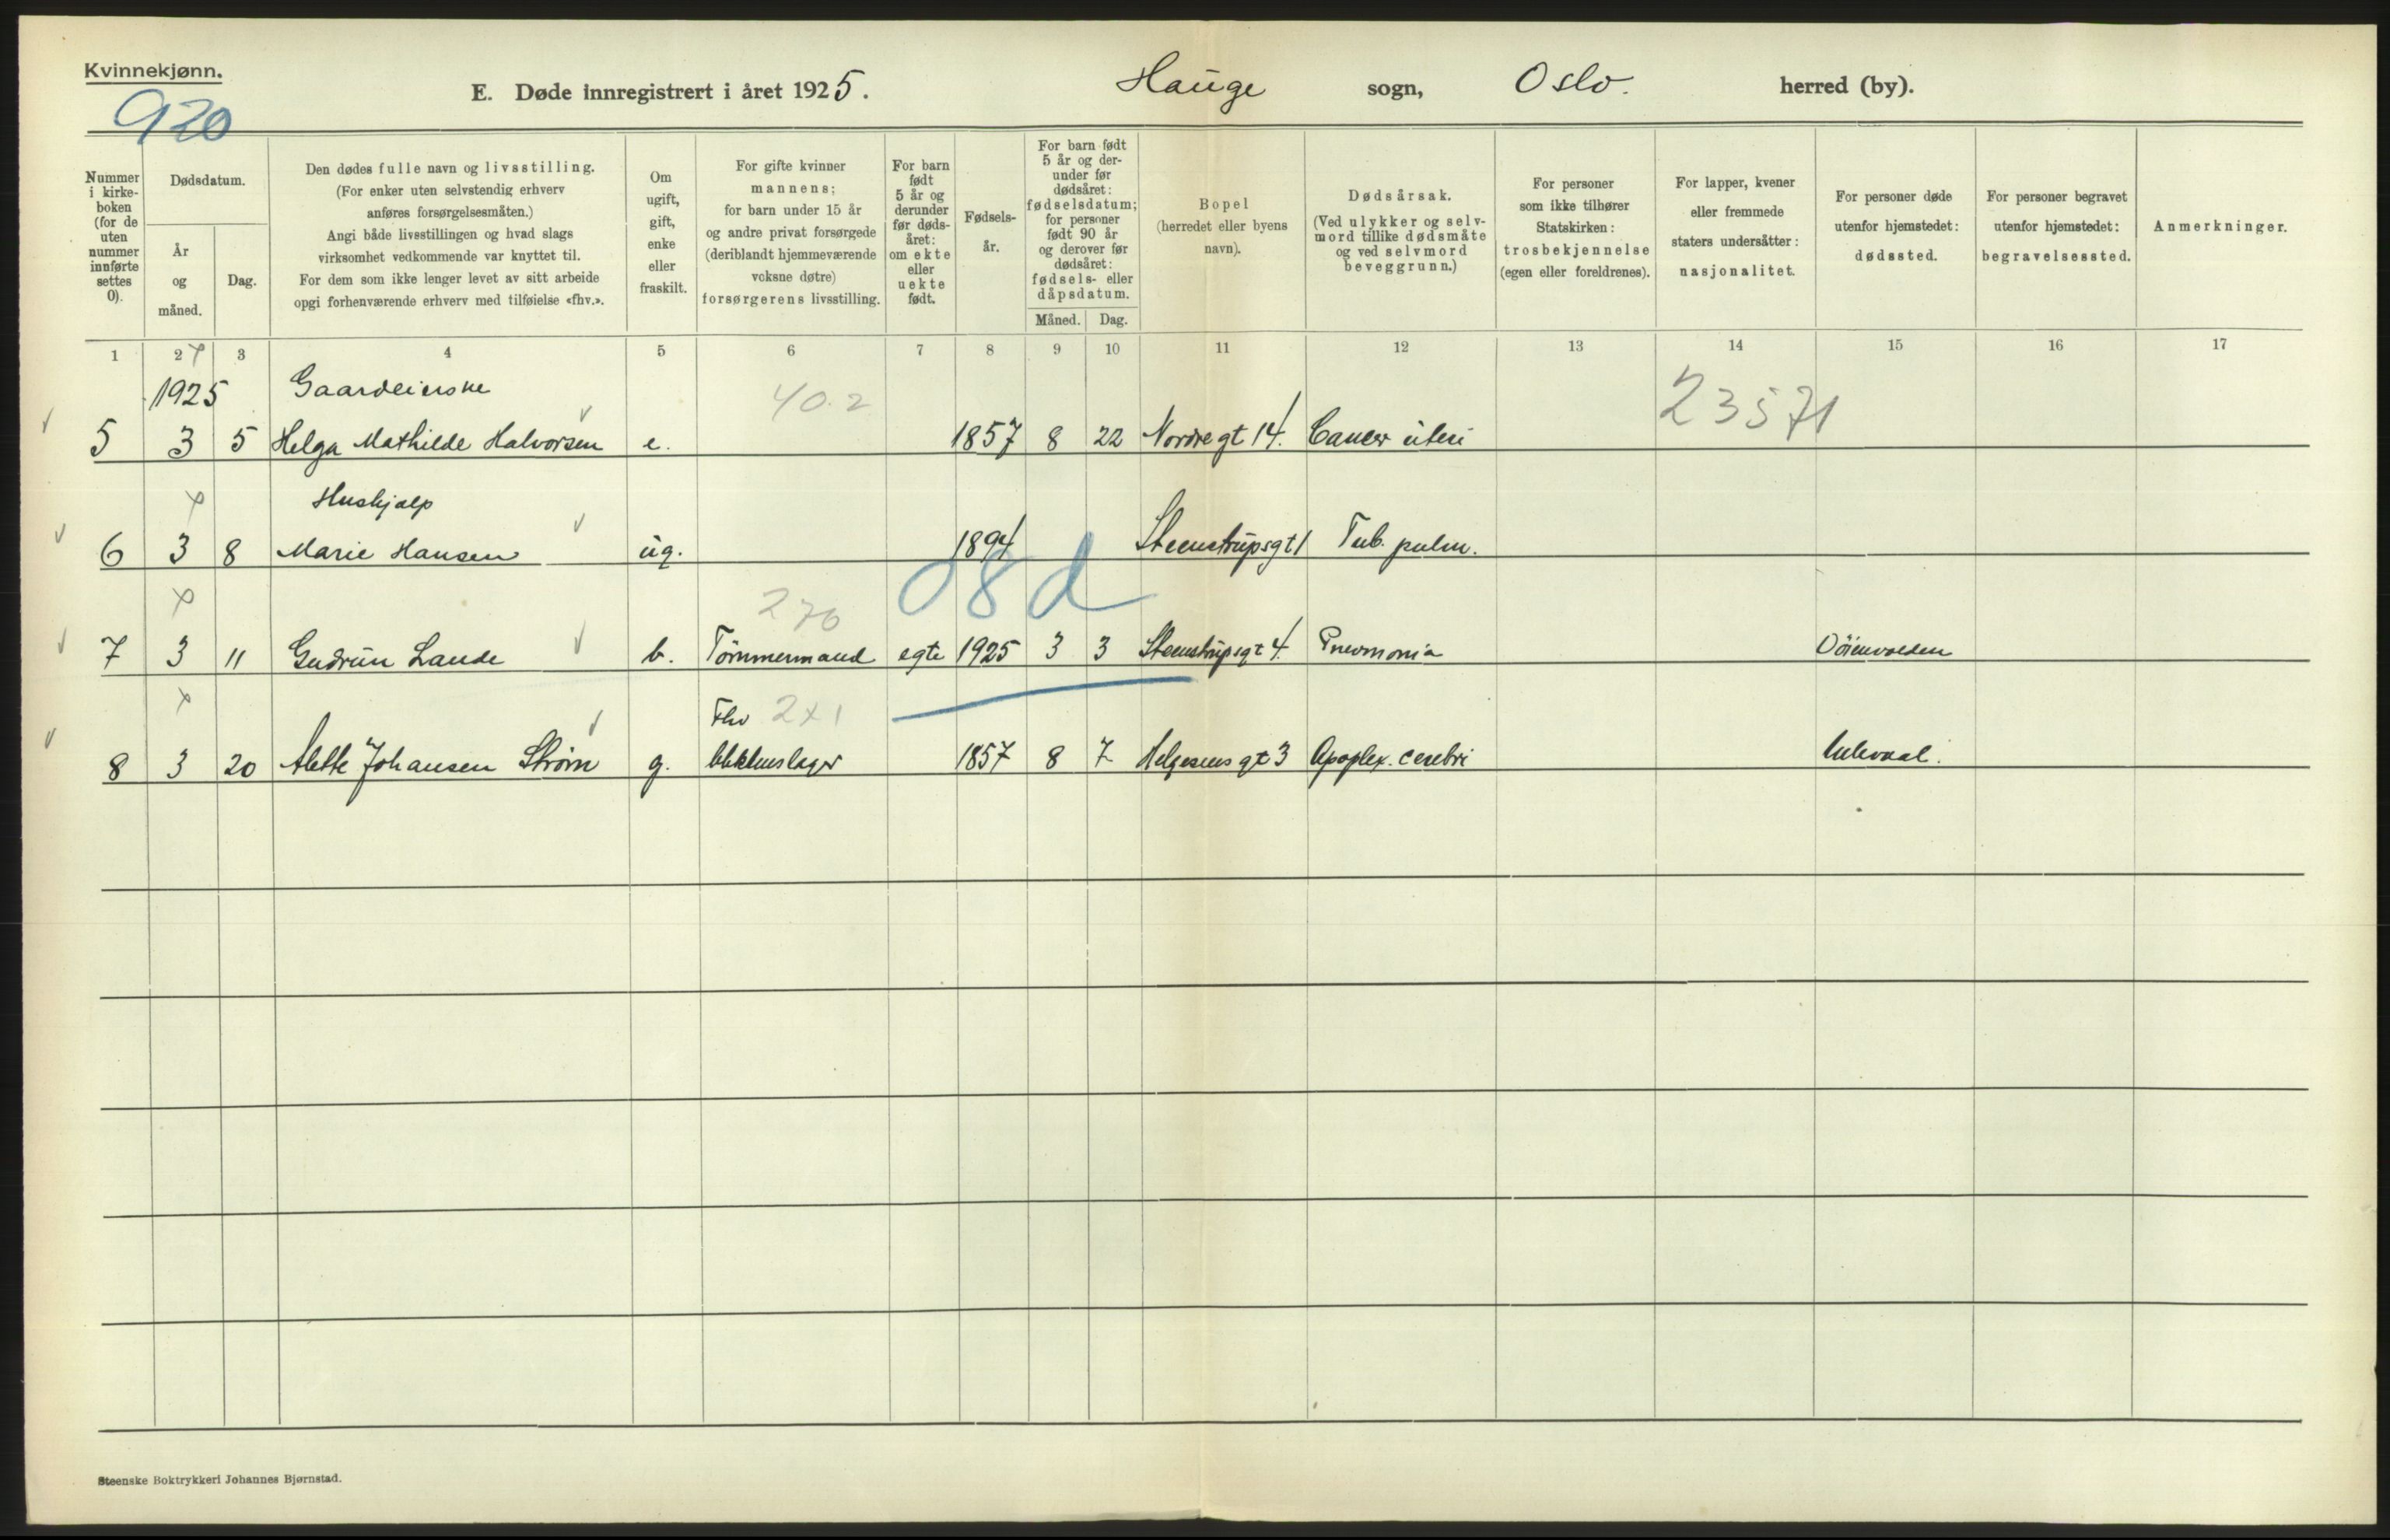 Kvinnekjønn.
920
E. Døde innregistrert i året 1925. Hauge sogn, Oslo. herred (by).
Nummer i kirkeboken (for de uten nummer innførte settes 0).
Dødsdatum.
År og måned.
Dag.
Den dødes fulle navn og livsstilling.
(For enker uten selvstendig erhverv
anføres forsørgelsesmåten.)
Angi både livsstillingen og hvad slags
virksomhet vedkommende var knyttet til.
For dem som ikke lenger levet av sitt arbeide
opgi forhenværende erhverv med tilføielse «fhv.».
Om
ugift,
gift,
enke
eller
fraskilt.
For gifte kvinner
mannens;
for barn under 15 år
og andre privat forsørgede
(deriblandt hjemmeværende
voksne døtre)
forsørgerens livsstilling.
For barn
født
5 år og
derunder
før døds-
året:
om ekte
eller
uekte
født.
Fødsels-
år.
For barn født
5 år og der-
under før
dødsåret:
fødselsdatum;
for personer
født 90 år
og derover før
dødsåret:
fødsels- eller
dåpsdatum.
Måned. Dag.
Bopel
(herredet eller byens
navn).
Dødsårsak.
(Ved ulykker og selv-
mord tillike dødsmåte
og ved selvmord
beveggrunn.)
For personer
som ikke tilhører
Statskirken:
trosbekjennelse
(egen eller foreldrenes).
For lapper, kvener
eller fremmede
staters undersåtter:
nasjonalitet.
For personer døde
utenfor hjemstedet:
dødssted.
For personer begravet
utenfor hjemstedet:
begravelsessted.
Anmerkninger.
1 2 3 4 5 6 7 8 9 10 11 12 13 14 15 16 17
1925 Gaardeierske 40.2 23571
5 3 5 Helga Mathilde Halvorsen e. 1857 8 22 Nordregt 14. Cancer uteri
Hushjælp
6 3 8 Marie Hansen ug. 1894 Steenstrupsgt 1 Tub. pulm.
270
7 3 11 Gudrun Lande b. Tømmermand egte 1925 3 3 Steenstrupsgt 4. Pneumonia Döienvolden
Fhv 2x1
8 3 20 Alette Johansen Strøm g. blikkenslager 1857 8 7 Helgesens gt 3 Apoplex. cerebri Ullevaal.
Steenske Boktrykkeri Johannes Bjørnstad.